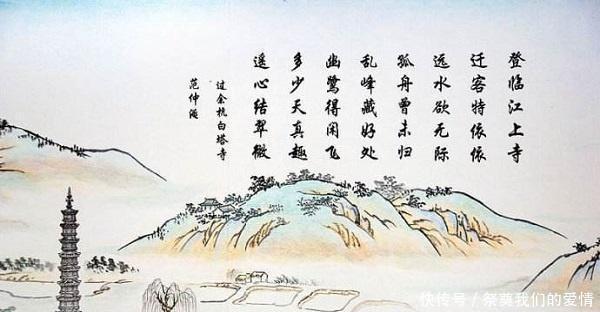 登临江上寺
迁客特依依
远水欲无际
孤舟曾未归
乱峰藏好处
幽鹭得闲飞
多少天真趣
遥心结翠微
过余杭白塔寺
范仲淹
快传号/祭奠我们的爱情